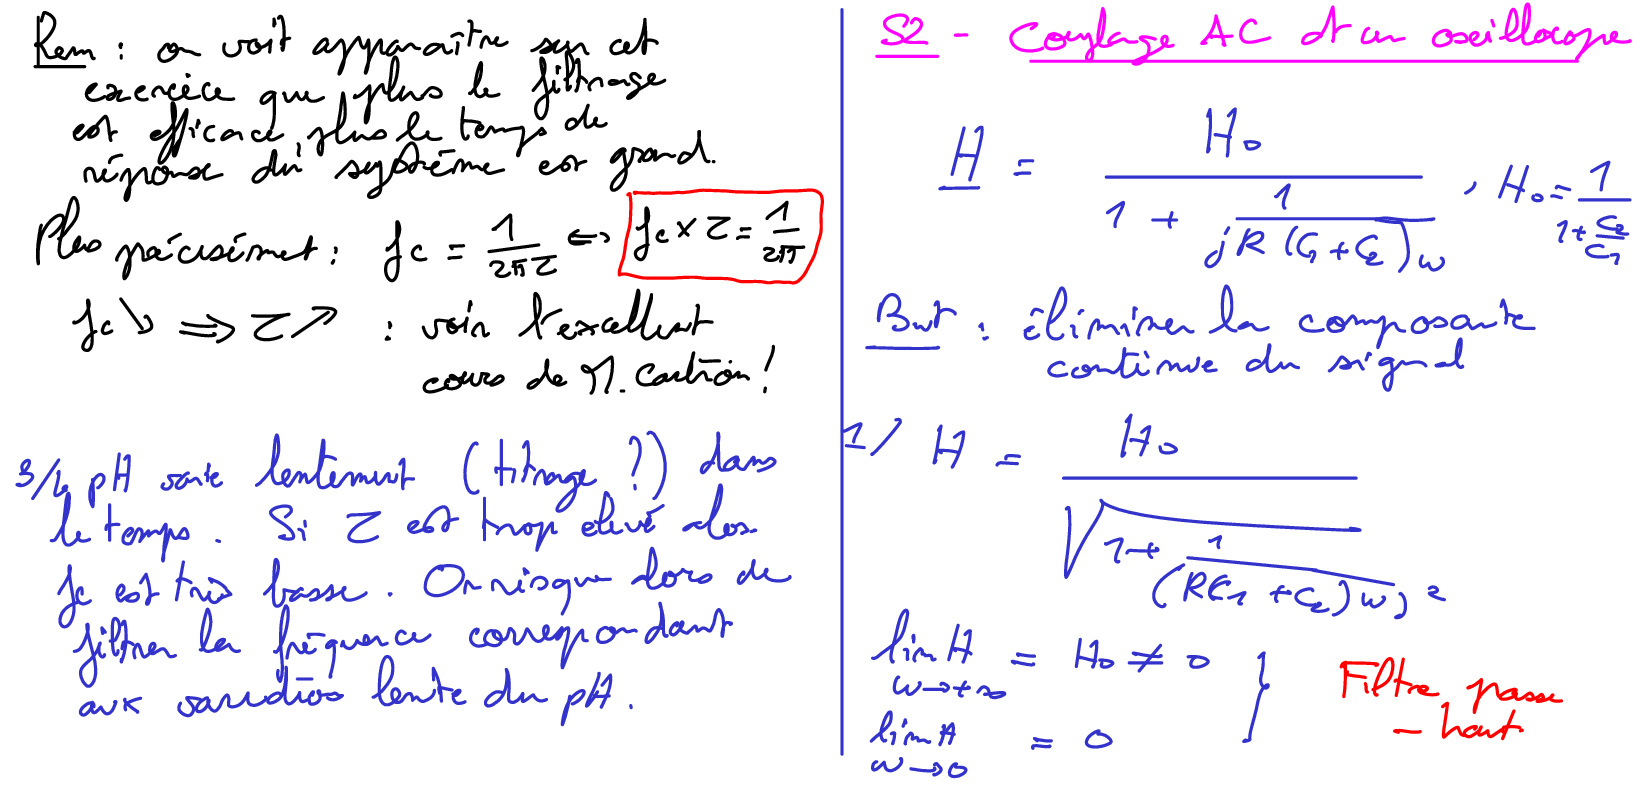 Rem : on voit apparaître sur cet
exercice que plus le filtrage
est efficace plus le temps de
réponse du système est grand.
Plus précisément : fc = 1/(2πτ) <=> fc × τ = 1/(2π)
fc ↘ => τ ↗ : voir l'excellent
cours de M. Cartron !
3/ Le pH varie lentement (titrage ?) dans
le temps. Si τ est trop élevé alors
fc est très basse. On risque alors de
filtrer la fréquence correspondant
aux variations lente du pH.
S2 - Couplage AC d'un oscilloscope
H = H0 / (1 + 1/(jR(C1 + C2)ω)) , H0 = 1/(1 + C2/C1)
But : éliminer la composante
continue du signal
1/ H = H0 / √(1 + 1/(R(C1 + C2)ω)²)
lim H = H0 ≠ 0
ω→+∞
lim H = 0
ω→0
Filtre passe
- haut